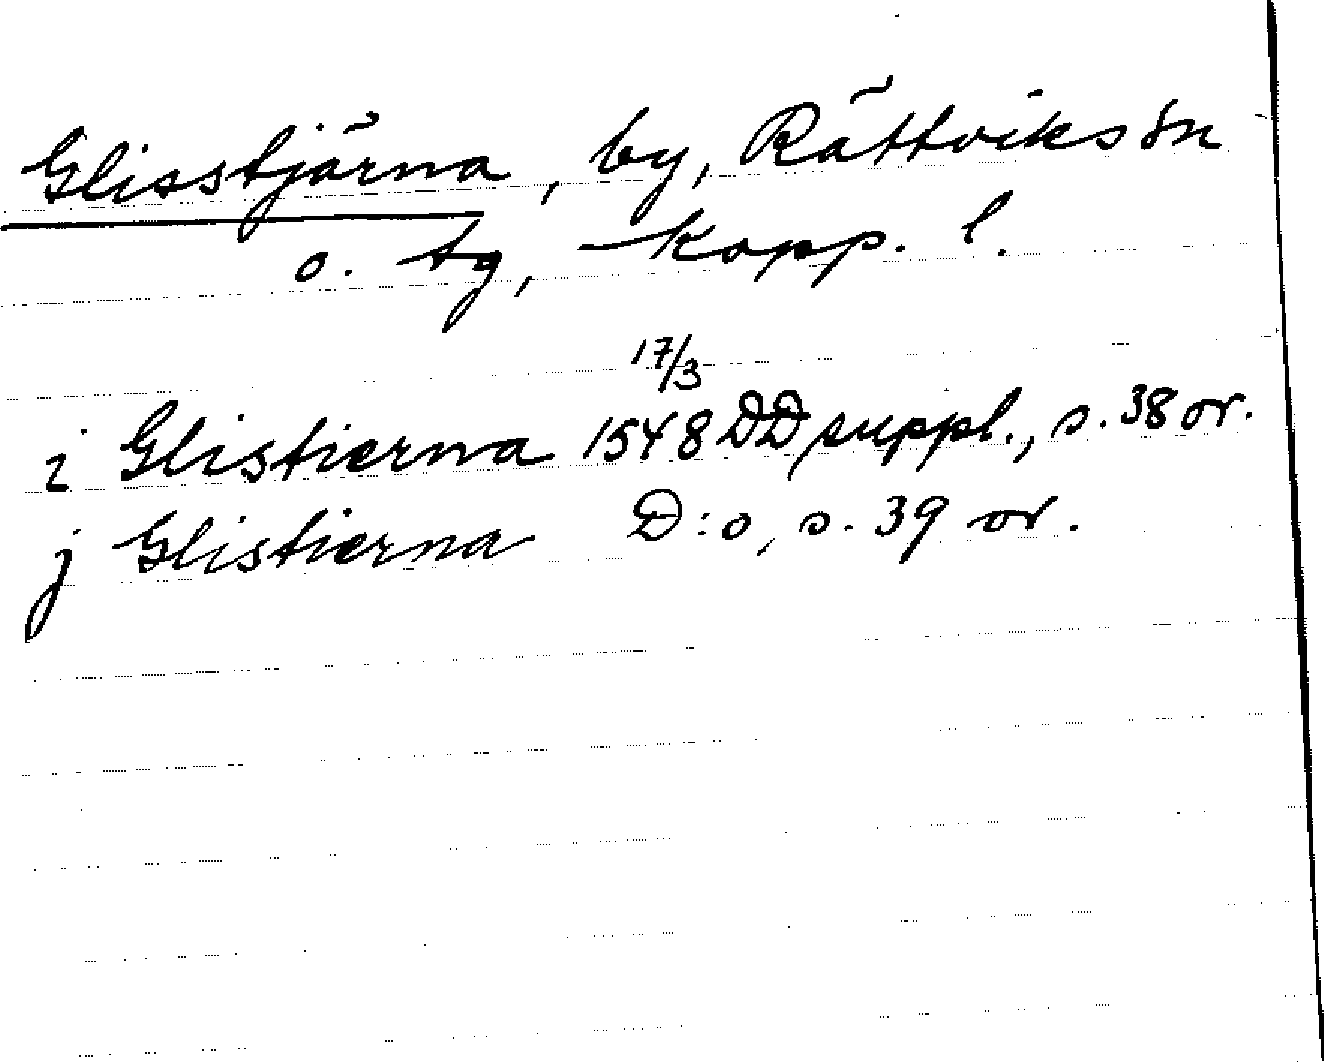 Glisstjärna, by, Rättviks sn
o. tg, Kopp. l.
17/3
i Glistierna 1548 DD suppl., s. 38 or.
j Glistierna D:o, s. 39 or.